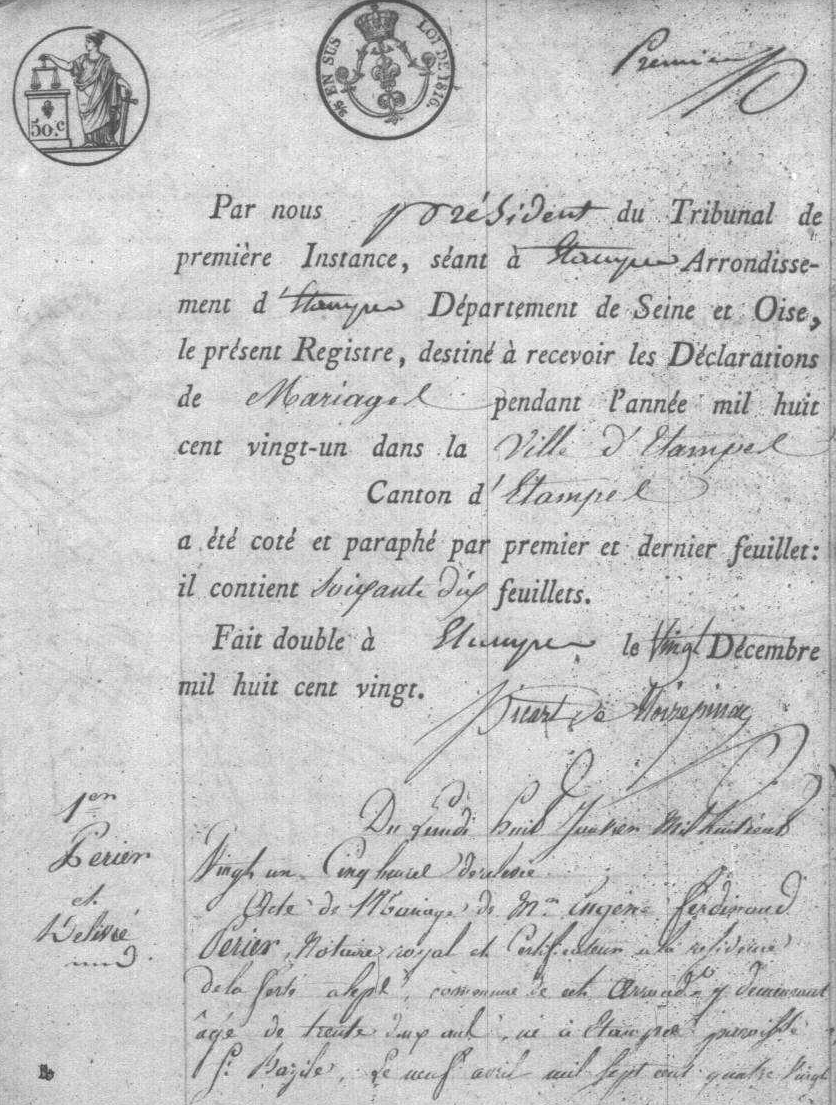 50.c
EN SUS
LOI DE 1816.
Premier
Par nous président du Tribunal de
première Instance, séant à Etampes Arrondisse-
ment d'Etampes Département de Seine et Oise,
le présent Registre, destiné à recevoir les Déclarations
de Mariages pendant l'année mil huit
cent vingt-un dans la Ville d'Etampes
Canton d'Etampes
a été coté et paraphé par premier et dernier feuillet:
il contient soixante dix feuillets.
Fait double à Etampes le Vingt Décembre
mil huit cent vingt.
Picart de Noirepinac
1er
Perier
et
Delivré
Du Lundi huit Janvier Mil huit cent
Vingt un Cinq heures
Acte de Mariage de Mr Eugene Ferdinand
Perier, Notaire royal et Certificateur a la residence
de la ferté alept, commune de cet Arrondt y demeurant
âgé de trente deux ans, né à Etampes paroisse
St Bazile, Le neuf avril mil sept cent quatre vingt